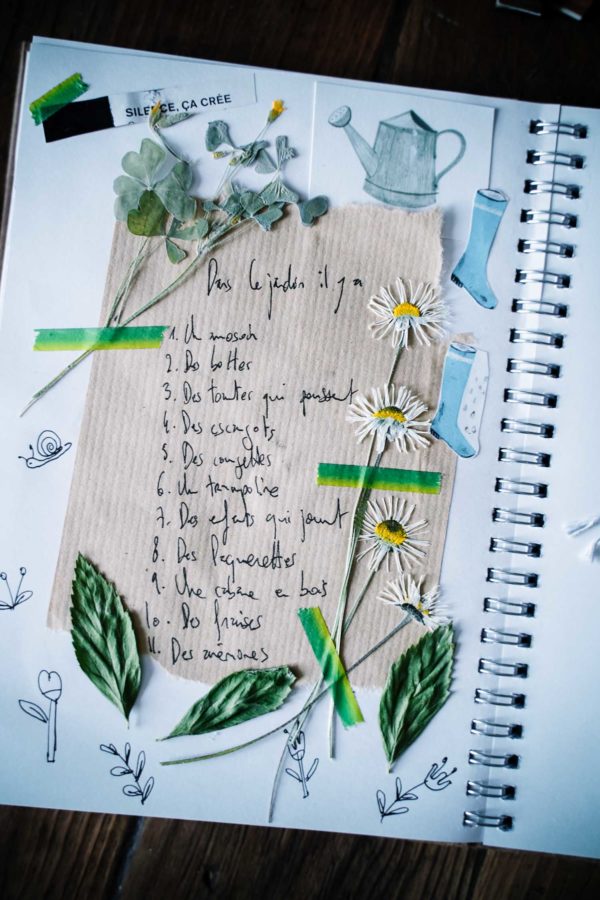 SILENCE, ÇA CRÉE
Dans le jardin il y a
1. Un
2. Des bottes
3. Des qui poussent
4. Des escargots
5. Des courgettes
6. Un trampoline
7. Des enfants qui jouent
8. Des Pâquerettes
9. Une cabane en bois
10. Des fraises
11. Des anémones